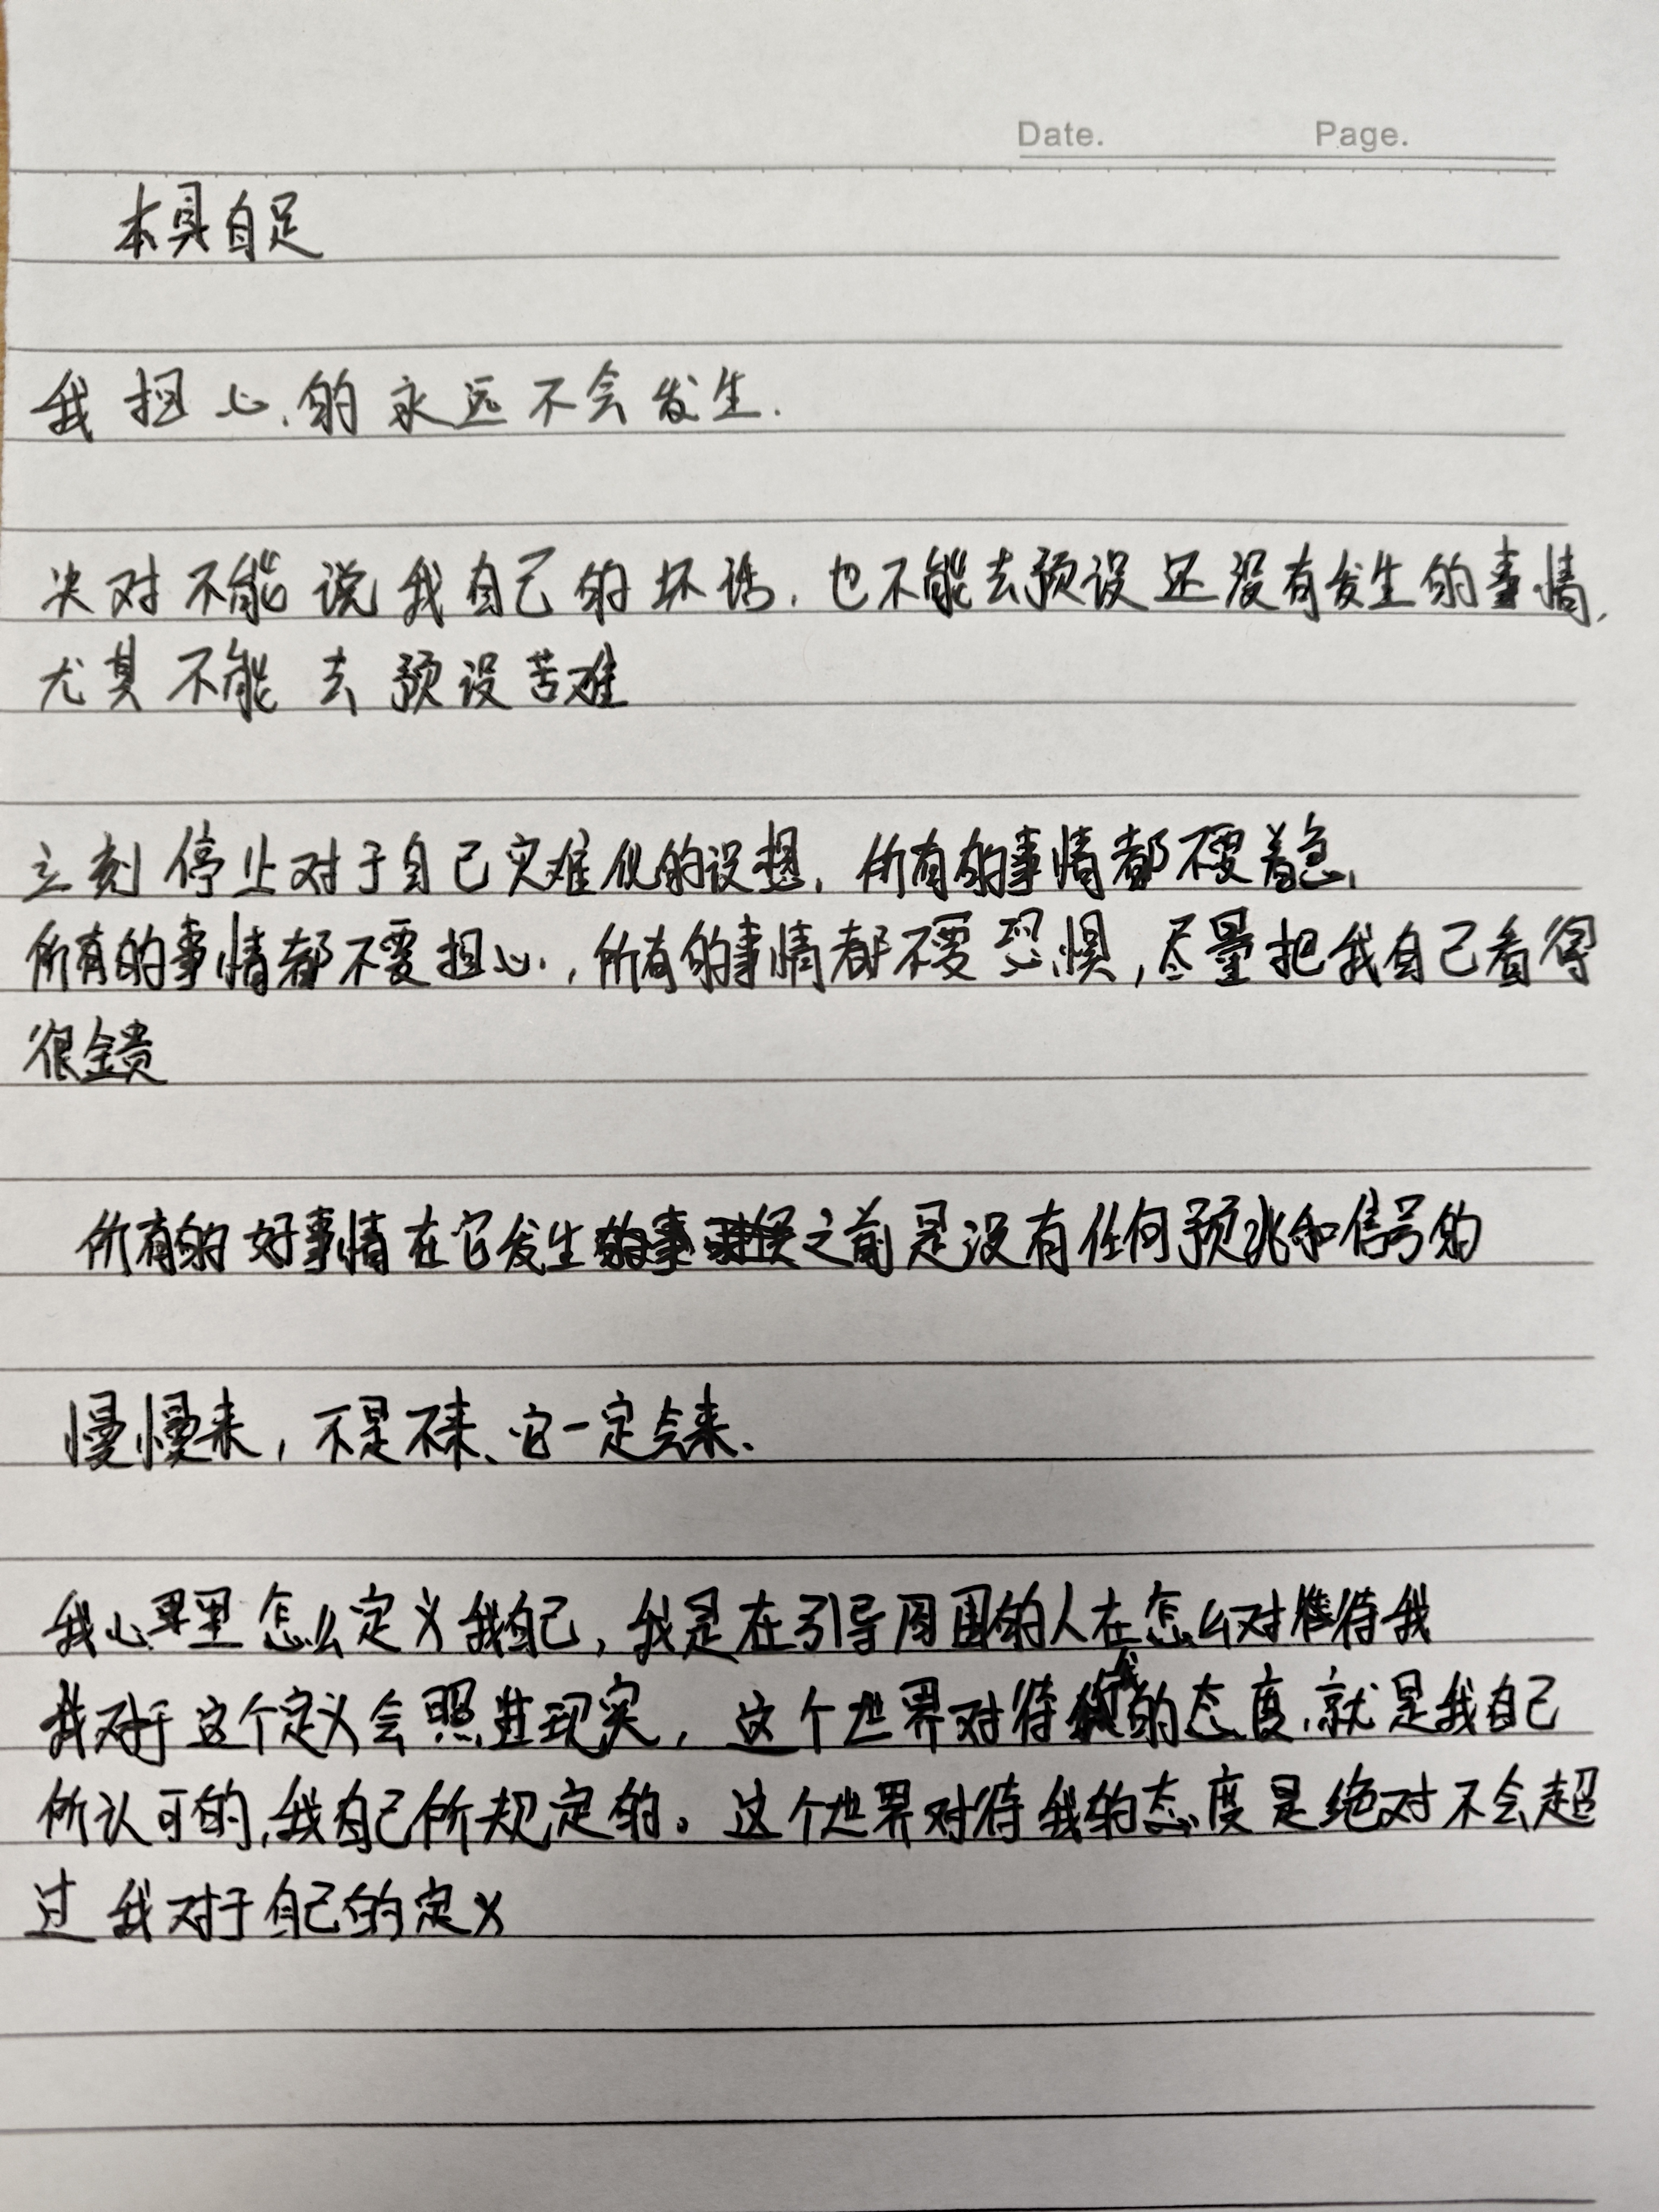 Date. Page.
本具自足
我担心的永远不会发生.
决对不能说我自己的坏话.也不能去预设还没有发生的事情,
尤其不能去预设苦难
立刻停止对于自己灾难化的设想,所有的事情都不要着急,
所有的事情都不要担心,所有的事情都不要恐惧,尽量把我自己看得
很金贵
所有的好事情在它发生之前是没有任何预兆和信号的
慢慢来,不是不来、它一定会来、
我心里怎么定义我自己,我是在引导周围的人在怎么对待我
我对于这个定义会照进现实,这个世界对待我的态度,就是我自己
所认可的,我自己所规定的。这个世界对待我的态度是绝对不会超
过我对于自己的定义